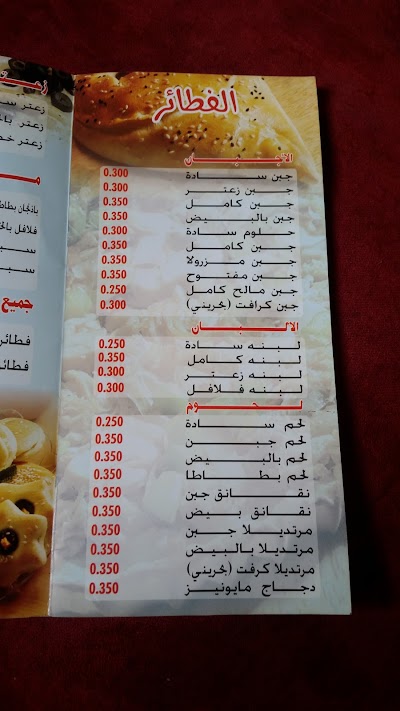 الفطائر
الاجبـــان
جبن ســـادة 0.300
جبن زعتر 0.300
جبن كامل 0.350
جبن بالبيض 0.350
حلوم سادة 0.300
جبن كامل 0.350
جبن مزرولا 0.350
جبن مفتوح 0.350
جبن مالح كامل 0.250
جبن كرافت (بحريني) 0.300
الالبـــان
لبنه سادة 0.250
لبنه كامل 0.350
لبنه زعتر 0.300
لبنه فلافل 0.300
لحـــوم
لحم سادة 0.250
لحم جبن 0.350
لحم بالبيض 0.350
لحم بطاطا 0.350
نقانق جبن 0.350
نقانق بيض 0.350
مرتديلا جبن 0.350
مرتديلا بالبيض 0.350
مرتديلا كرفت (بحريني) 0.350
دجاج مايونيز 0.350
زعتر
زعتر
زعتر
باذنجان بطاطا
فلافل
جميع
فطائر
فطائر